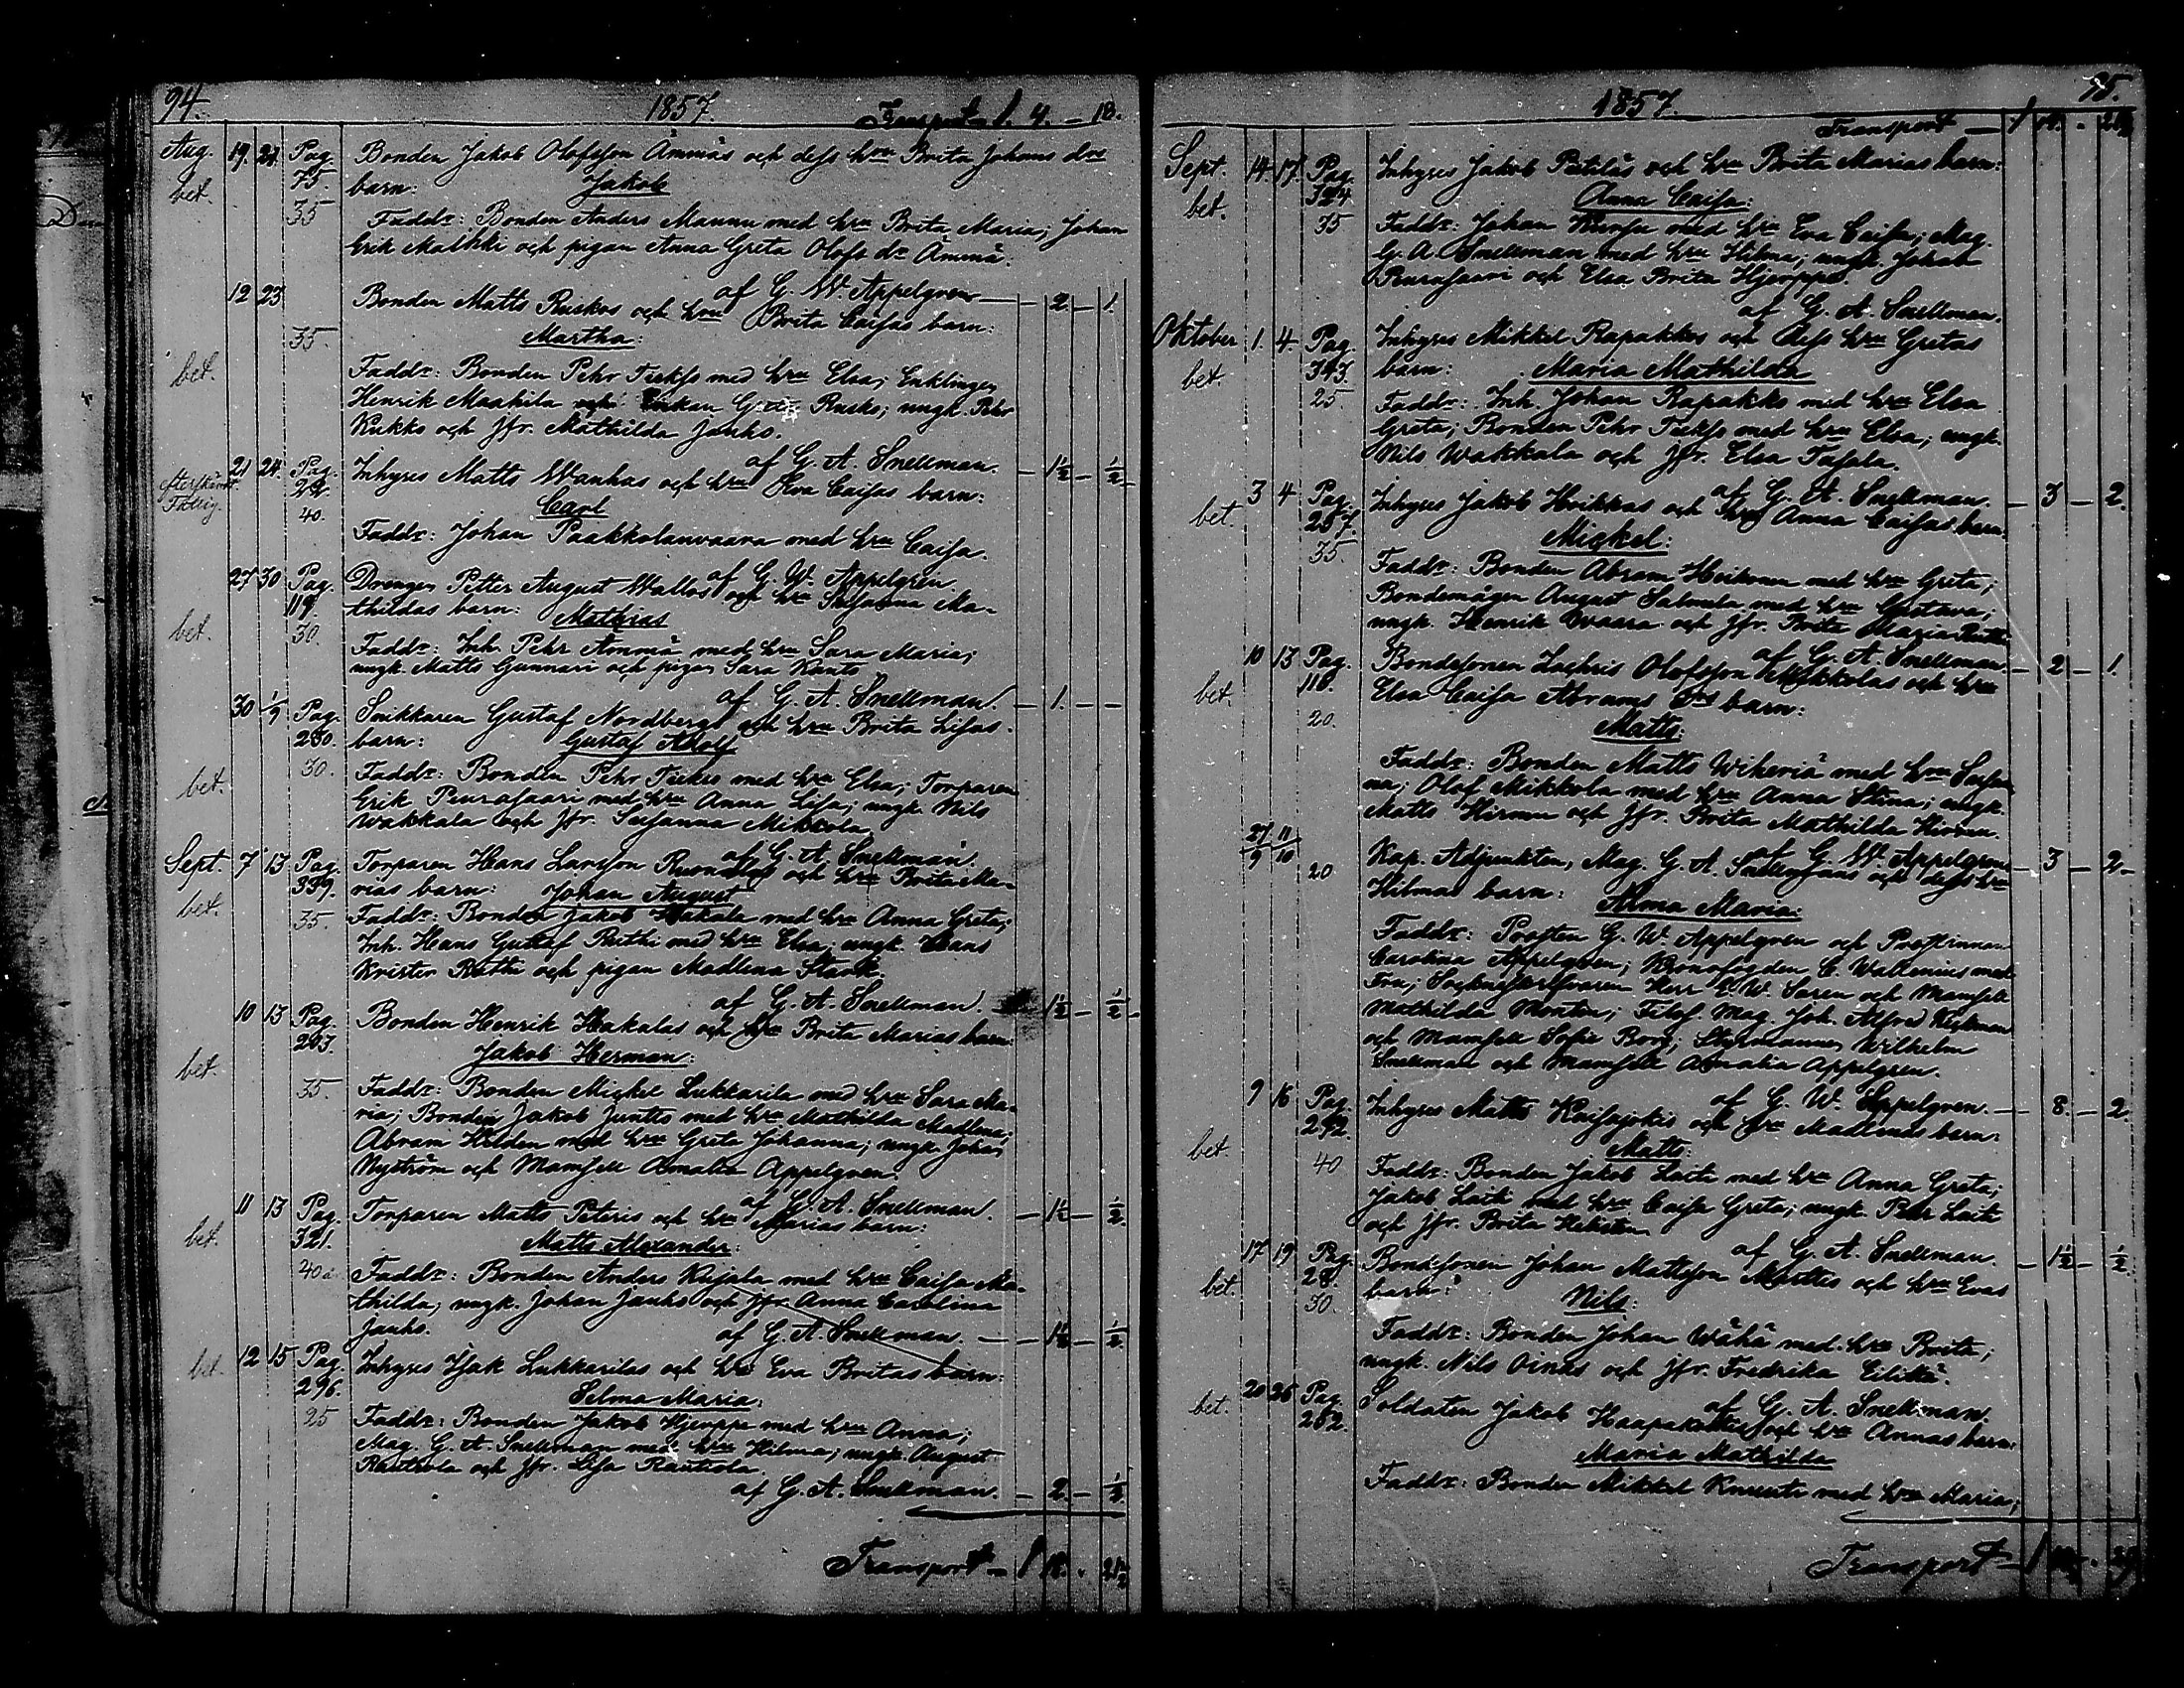 94. 1857. Transport 1. 4. — 18.
Aug. 19. 21. Pag. Bonden Jakob Olofsson Ämmäs och dess hru Brita Johans drs
bet. 75. barn: Jakob
35 Faddr: Bonden Anders Mannu med hru Brita Maria; Johan
Erik och pigan Anna Greta Olofs dr Ämmä.
af G. W. Appelgren — — 2 — 1.
12 23 Bonden Matts Ruskos och hru Brita Caisas barn:
35. Martha:
bet. Faddr: Bonden Pehr med hru Elsa; Enklingen
Henrik Maahila och Enkan Greta Rusko; ungk. Pehr
Kukko och jfr. Mathilda Jauho.
af G. A. Snellman. — 1½ — ½
21 24. Pag. Inhyses Matts Wanhas och hru Eva Caisas barn:
Fattig. 40. Carl
Faddr: Johan Paakkolanvaara med hru Caisa.
af G. W. Appelgren.
27 30 Pag. Drengen Petter August Wallos och hru Susanna Ma-
119. thildas barn: Mathias
bet. 30. Faddr: Inh. Pehr Ämmä med hru Sara Maria;
ungk. Matts Gunnari och pigan Sara Kanto
af G. A. Snellman. — 1. — —
30 1/9 Pag. Snikkaren Gustaf Nordbergs och hru Brita Lisas
280. barn: Gustaf Adolf
30. Faddr: Bonden Pehr med hru Elsa; Torparen
bet. Erik Peurasaari med hru Anna Lisa; ungk. Nils
Wakkala och jfr. Susanna Mikkola
af G. A. Snellman.
Sept. 7 13 Pag. Torparen Hans Larsson och hru Brita Ma-
bet. 339. rias barn: Johan August
35. Faddr: Bonden Jakob Hakala med hru Anna Greta;
Inh. Hans Gustaf Ruthi med hru Elsa; ungk. Hans
Krister Ruthi och pigan Madlena Stark.
af G. A. Snellman. — 1½ — ½
10 13 Pag. Bonden Henrik Hakalas och hru Brita Marias barn
293. Jakob Herman:
bet.
35. Faddr: Bonden Mickel Lukkarila med hru Sara Ma-
ria; Bonden Jakob Juntto med hru Mathilda Madlena;
Abram Hilden med hru Greta Johanna; ungk. Johan
Nyström och Mamsell Amalia Appelgren.
af G. A. Snellman. — 1½ — ½.
11 13 Pag. Torparen Matts Peteris och hru Marias barn:
bet. 321. Matts Alexander:
40 Faddr: Bonden Anders Kujala med hru Caisa Ma-
thilda; ungk. Johan Jauho och jfr. Anna Carolina
Jauho. af G. A. Snellman. — — 1½ — ½.
bet. 12 15 Pag. Inhyses Isak Lukkarilas och hru Eva Britas barn:
296. Selma Maria:
25 Faddr: Bonden Jakob Hjerppe med hru Anna;
Mag. G. A. Snellman med hru Hilma; ungk. August
Rautiola och jfr. Lisa Rautiola
af G. A. Snellman. — 2 — ½.
Transport — 1 18. . 21½
95.
1857.
Transport — 1 18. . 21½
Sept. 14. 17. Pag. Inhyses Jakob Pätiläs och hru Brita Marias barn:
bet. 324 Anna Caisa:
35 Faddr: Johan med hru Eva Caisa; Mag.
G. A. Snellman med hru Hilma; ungk. Johan
Peurasaari och Elsa Brita Hjerppe.
af G. A. Snellman.
Oktober 1. 4. Pag. Inhyses Mikkel Rapakkos och dess hru Gretas
bet. 393. barn: Maria Mathilda
25. Faddr: Inh. Johan Rapakko med hru Elsa
Greta; Bonden Pehr med hru Elsa; ungk.
Nils Wakkala och jfr. Elsa
af G. A. Snellman. — 3 — 2.
3 4 Pag. Inhyses Jakob Heikkas och hru Anna Caisas barn:
bet. 287. Mickel:
35. Faddr: Bonden Abram Heikonen med hru Greta;
Bondemågen August Salmela med hru Gustava;
ungk. Henrik Waara och jfr. Brita Maria
af G. A. Snellman. — 2 — 1.
10 13 Pag. Bondesonen Zachris Olofsson Mikkolas och hru
bet. 118. Elsa Caisa Abrams drs barn:
20. Matts:
Faddr: Bonden Matts med hru Susan-
na; Olof Mikkola med hru Anna Stina; ungk.
Matts Hirvnen och jfr. Brita Mathilda Hirvnen.
af G. W. Appelgren — 3 — 2
27/9 11/10 20 Kap. Adjunkten, Mag. G. A. Snellmans och dess hru
Hilmas barn: Alma Maria:
Faddr: Prosten G. W. Appelgren och Prostinnan
Carolina Appelgren; Kronofogden C. Wallenius med
Fru; Herr E. W. Soren och Mamsell
Mathilda Monten; Filos. Mag. Joh. Alfred Kickman
och Mamsell Sofie Borg; Styrmannen Wilhelm
Snellman och Mamsell Amalia Appelgren.
af G. W. Appelgren. — 8. — 2
9 16 Pag. Inhyses Matts och hru Madlenas barn:
bet. 292. Matts:
40 Faddr: Bonden Jakob Laiti med hru Anna Greta;
Jakob Laiti med hru Caisa Greta; ungk. Pehr Laiti
och jfr. Brita
af G. A. Snellman. — 1½ — ½.
17 19 Pag. Bondesonen Johan Mattsson Marttis och hru Evas
bet. 28. barn: Nils:
30. Faddr: Bonden Johan Wähä med hru Brita;
ungk. Nils Oinas och jfr. Fredrika Eilikä.
af G. A. Snellman.
20 25 Pag. Soldaten Jakob och hru Annas barn:
bet. 262. Maria Mathilda
Faddr: Bonden Mikkel med hru Maria;
Transport — 1